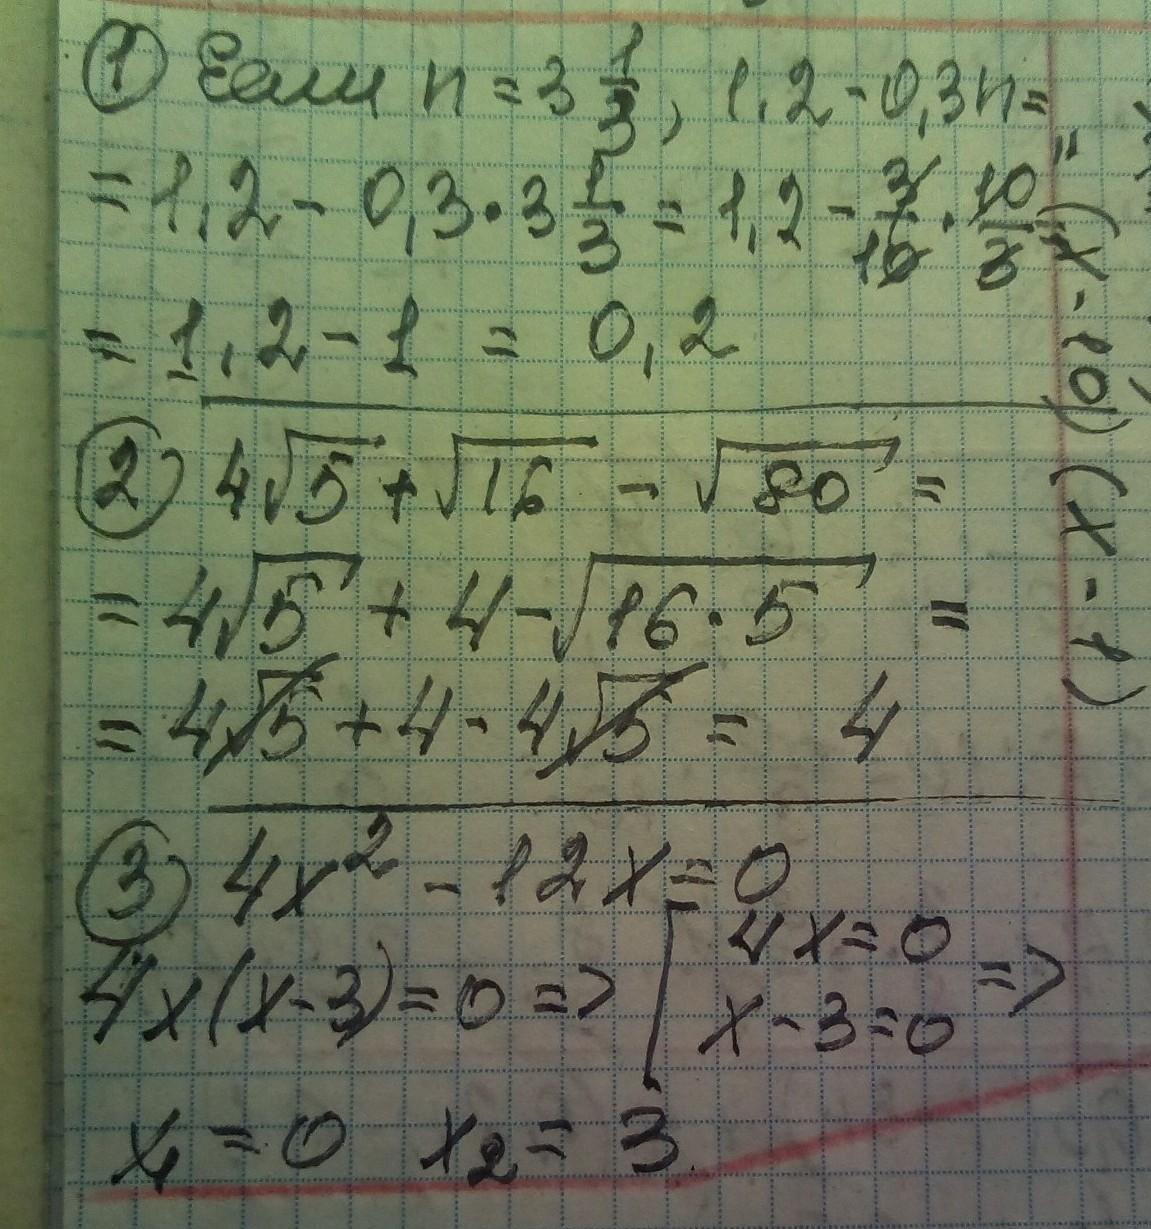 ① Если n = 3 1/3, 1,2 - 0,3n =
= 1,2 - 0,3 · 3 1/3 = 1,2 - 3/10 · 10/3 =
= 1,2 - 1 = 0,2
② 4√5 + √16 - √80 =
= 4√5 + 4 - √16·5 =
= 4√5 + 4 - 4√5 = 4
③ 4x² - 12x = 0
4x(x-3) = 0 => [ 4x = 0
x - 3 = 0 =>
x₁ = 0 x₂ = 3
(x-10)(x-1)